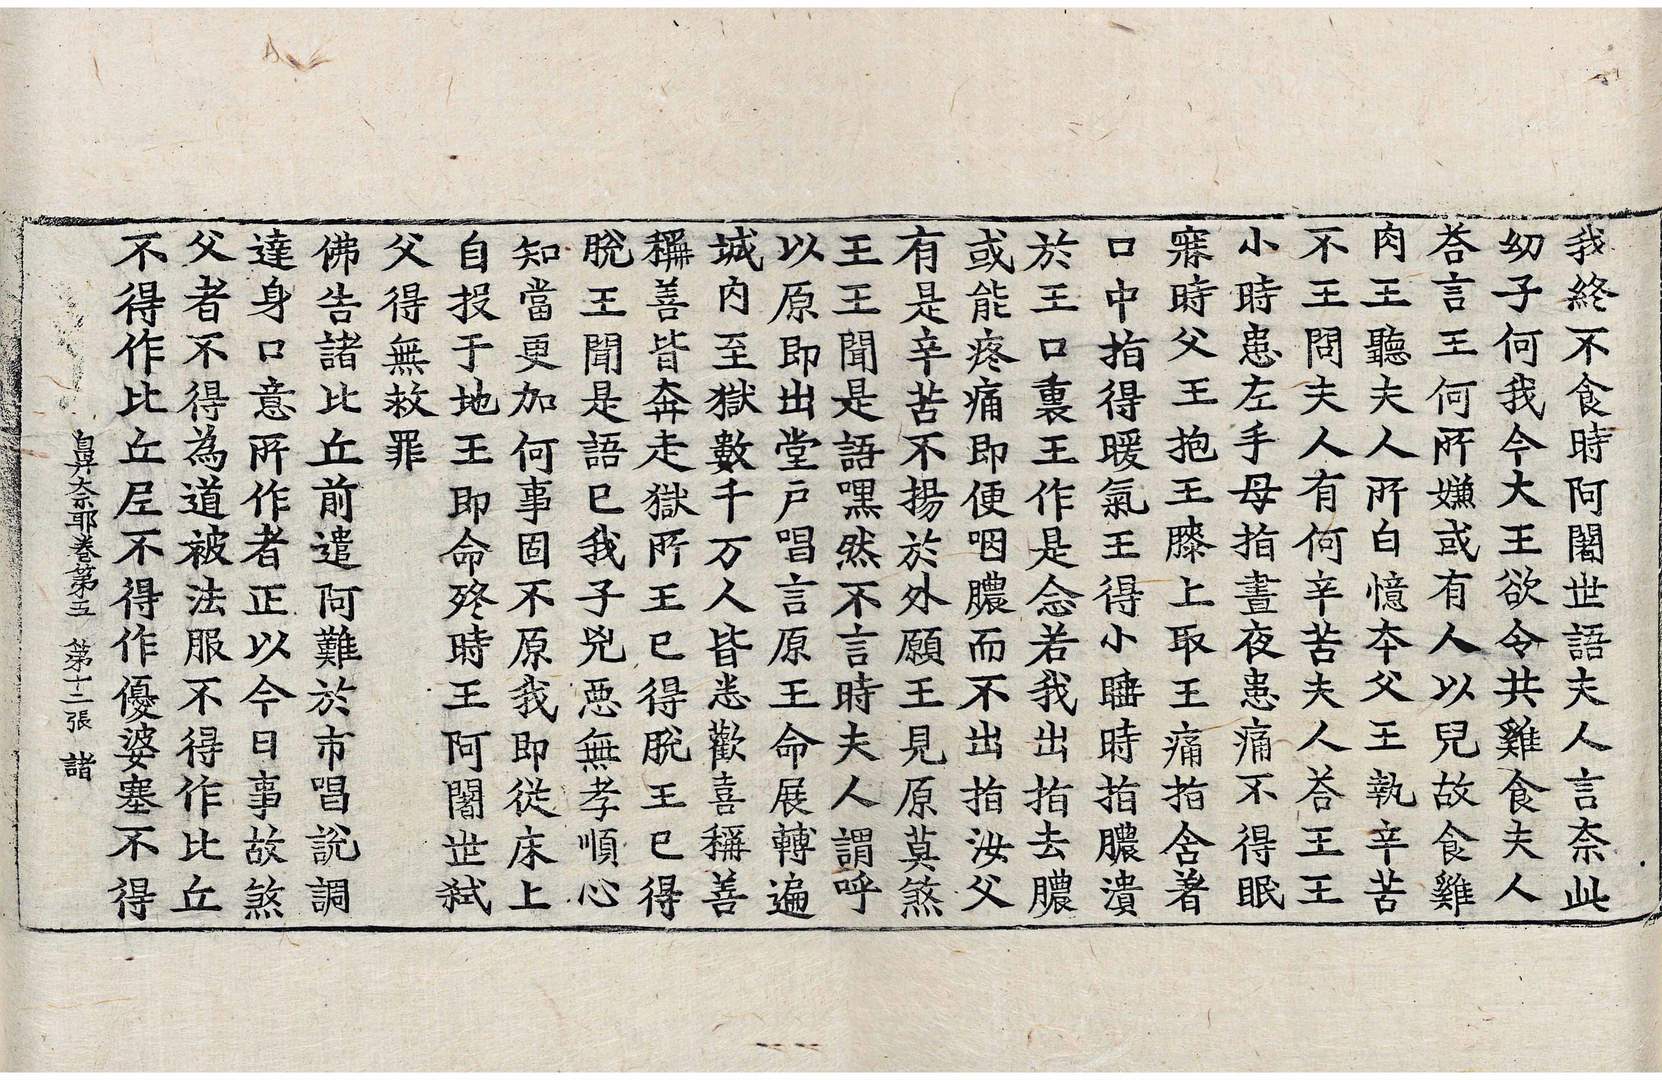 我終不食時阿闍世語夫人言奈此
幼子何我今大王欲令共雞食夫人
荅言王何所嫌或有人以兒故食雞
肉王聽夫人所白憶本父王執辛苦
不王問夫人有何辛苦夫人荅王王
小時患左手母指晝夜患痛不得眠
寐時父王抱王膝上取王痛指含著
口中指得暖氣王得小睡時指膿潰
於王口裏王作是念若我出指去膿
或能疼痛即便咽膿而不出指汝父
有是辛苦不揚於外願王見原莫煞
王王聞是語嘿然不言時夫人謂呼
以原即出堂户唱言原王命展轉遍
城內至獄數千万人皆悉歡喜稱善
稱善皆奔走獄所王已得脫王已得
脫王聞是語已我子兇惡無孝順心
知當更加何事固不原我即從床上
自投于地王即命殁時王阿闍世弑
父得無救罪
佛告諸比丘前遣阿難於市唱說調
達身口意所作者正以今日事故煞
父者不得為道被法服不得作比丘
不得作比丘尼不得作優婆塞不得
鼻奈耶卷第五　第十二張　諸